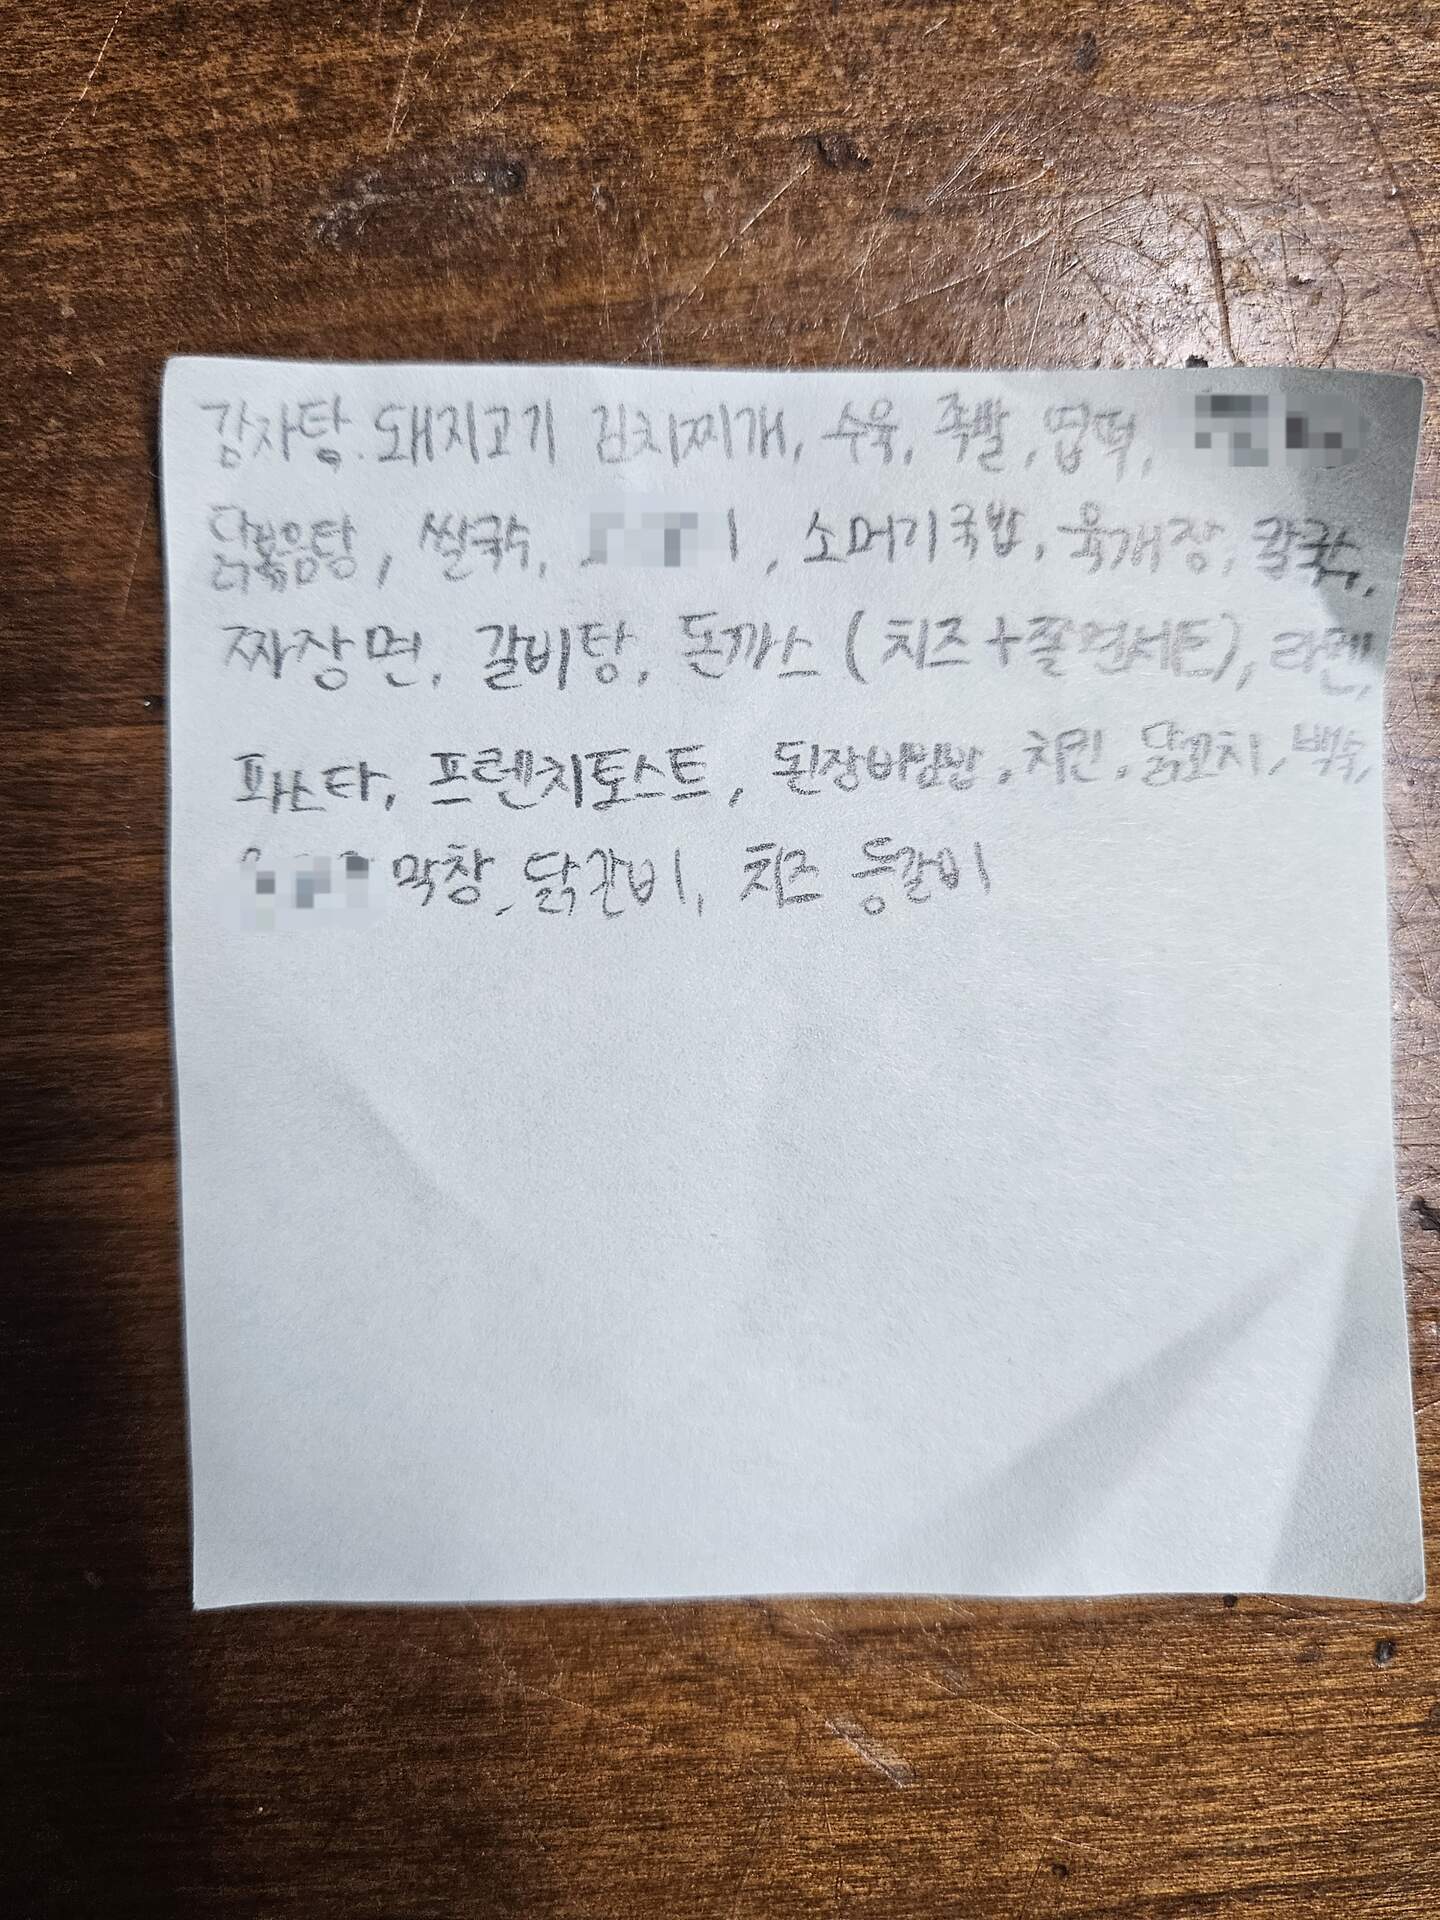 감자탕. 돼지고기 김치찌개, 수육, 족발, 엽떡,
닭볶음탕, 쌀국수, 소머리국밥, 육개장, 칼국수,
짜장면, 갈비탕, 돈까스 (치즈+쫄면세트), 라멘,
파스타, 프렌치토스트, 된장비빔밥, 치킨, 닭꼬치, 백숙,
막창, 닭갈비, 치즈 등갈비